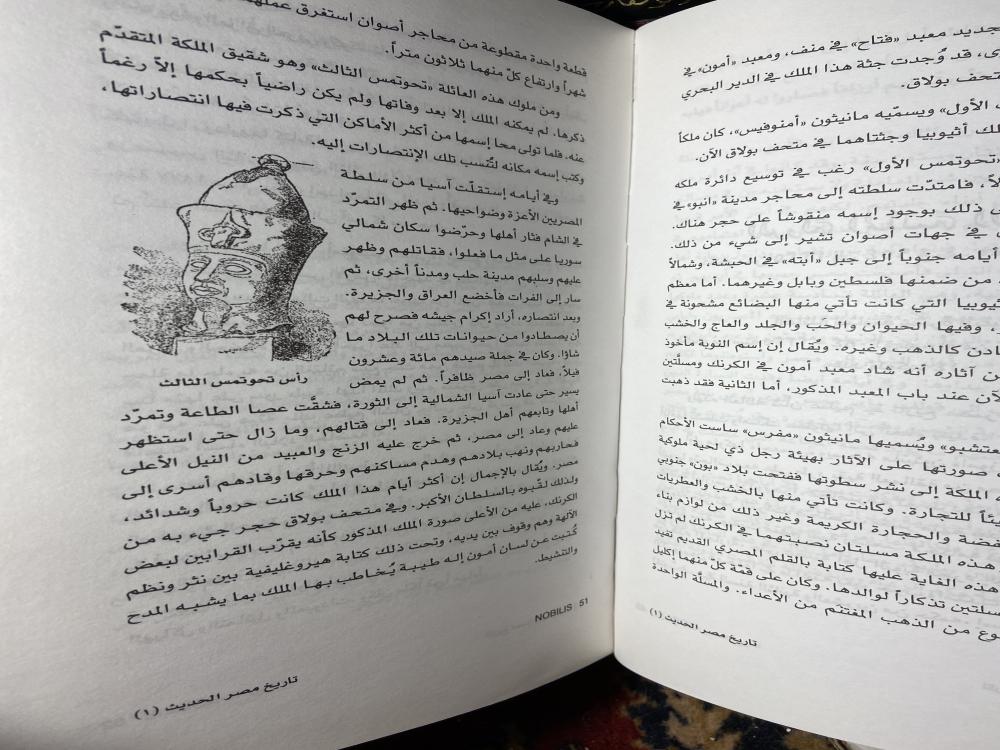 جديد معبد «فتاح» في منف، ومعبد «أمون» في
قد وُجدت جثة هذا الملك في الدير البحري
متحف بولاق.
الأول» ويسمّيه مانيثون «أمنوفيس»، كان ملكاً
أثيوبيا وجثتاهما في متحف بولاق الآن.
«تحوتمس الأول» رغب في توسيع دائرة ملكه
فامتدّت سلطته إلى محاجر مدينة «انبو» في
ذلك بوجود إسمه منقوشاً على حجر هناك.
في جهات أصوان تشير إلى شيء من ذلك.
أيامه جنوباً إلى جبل «أبته» في الحبشة، وشمالاً
من ضمنها فلسطين وبابل وغيرهما. أما معظم
التي كانت تأتي منها البضائع مشحونة في
وفيها الحيوان والحب والجلد والعاج والخشب
كالذهب وغيره. ويُقال إن إسم النوبة مأخوذ
آثاره أنه شاد معبد أمون في الكرنك ومسلّتين
عند باب المعبد المذكور، أما الثانية فقد ذهبت
ويُسميها مانيثون «مفرس» ساست الأحكام
صورتها على الآثار بهيئة رجل ذي لحية ملوكية
الملكة إلى نشر سطوتها ففتحت بلاد «بون» جنوبي
للتجارة. وكانت تأتي منها بالخشب والعطريات
والحجارة الكريمة وغير ذلك من لوازم بناء
هذه الملكة مسلتان نصبتهما في الكرنك لم تزل
هذه الغاية عليها كتابة بالقلم المصري القديم تفيد
تذكاراً لوالدها. وكان على قمّة كلّ منهما إكليل
من الذهب المغتنم من الأعداء. والمسلّة الواحدة
تاريخ مصر الحديث (١)
قطعة واحدة مقطوعة من محاجر أصوان استغرق عملهما
شهراً وارتفاع كلّ منهما ثلاثون متراً.
ومن ملوك هذه العائلة «تحوتمس الثالث» وهو شقيق الملكة المتقدّم
ذكرها. لم يمكنه الملك إلا بعد وفاتها ولم يكن راضياً بحكمها إلاّ رغماً
عنه. فلما تولى محا إسمها من أكثر الأماكن التي ذكرت فيها انتصاراتها،
وكتب إسمه مكانه لتُنسب تلك الإنتصارات إليه.
وفي أيامه إستقلّت آسيا من سلطة
المصريين الأعزة وضواحيها. ثم ظهر التمرّد
في الشام فثار أهلها وحرّضوا سكان شمالي
سوريا على مثل ما فعلوا، فقاتلهم وظهر
عليهم وسلبهم مدينة حلب ومدناً أخرى، ثم
سار إلى الفرات فأخضع العراق والجزيرة.
وبعد انتصاره، أراد إكرام جيشه فصرح لهم
أن يصطادوا من حيوانات تلك البلاد ما
شاؤا. وكان في جملة صيدهم مائة وعشرون
فيلاً، فعاد إلى مصر ظافراً. ثم لم يمض
رأس تحوتمس الثالث
يسير حتى عادت آسيا الشمالية إلى الثورة، فشقَّت عصا الطاعة وتمرّد
أهلها وتابعهم أهل الجزيرة. فعاد إلى قتالهم، وما زال حتى استظهر
عليهم وعاد إلى مصر، ثم خرج عليه الزنج والعبيد من النيل الأعلى
فحاربهم ونهب بلادهم وهدم مساكنهم وحرقها وقادهم أسرى إلى
مصر. ويُقال بالإجمال إن أكثر أيام هذا الملك كانت حروباً وشدائد،
ولذلك لقّبوه بالسلطان الأكبر. وفي متحف بولاق حجر جيء به من
الكرنك، عليه من الأعلى صورة الملك المذكور كأنه يقرّب القرابين لبعض
الآلهة وهم وقوف بين يديه، وتحت ذلك كتابة هيروغليفية بين نثر ونظم
كُتبت عن لسان أمون إله طيبة يُخاطب بها الملك بما يشبه المدح
والتنشيط.
NOBILIS 51
تاريخ مصر الحديث (١)